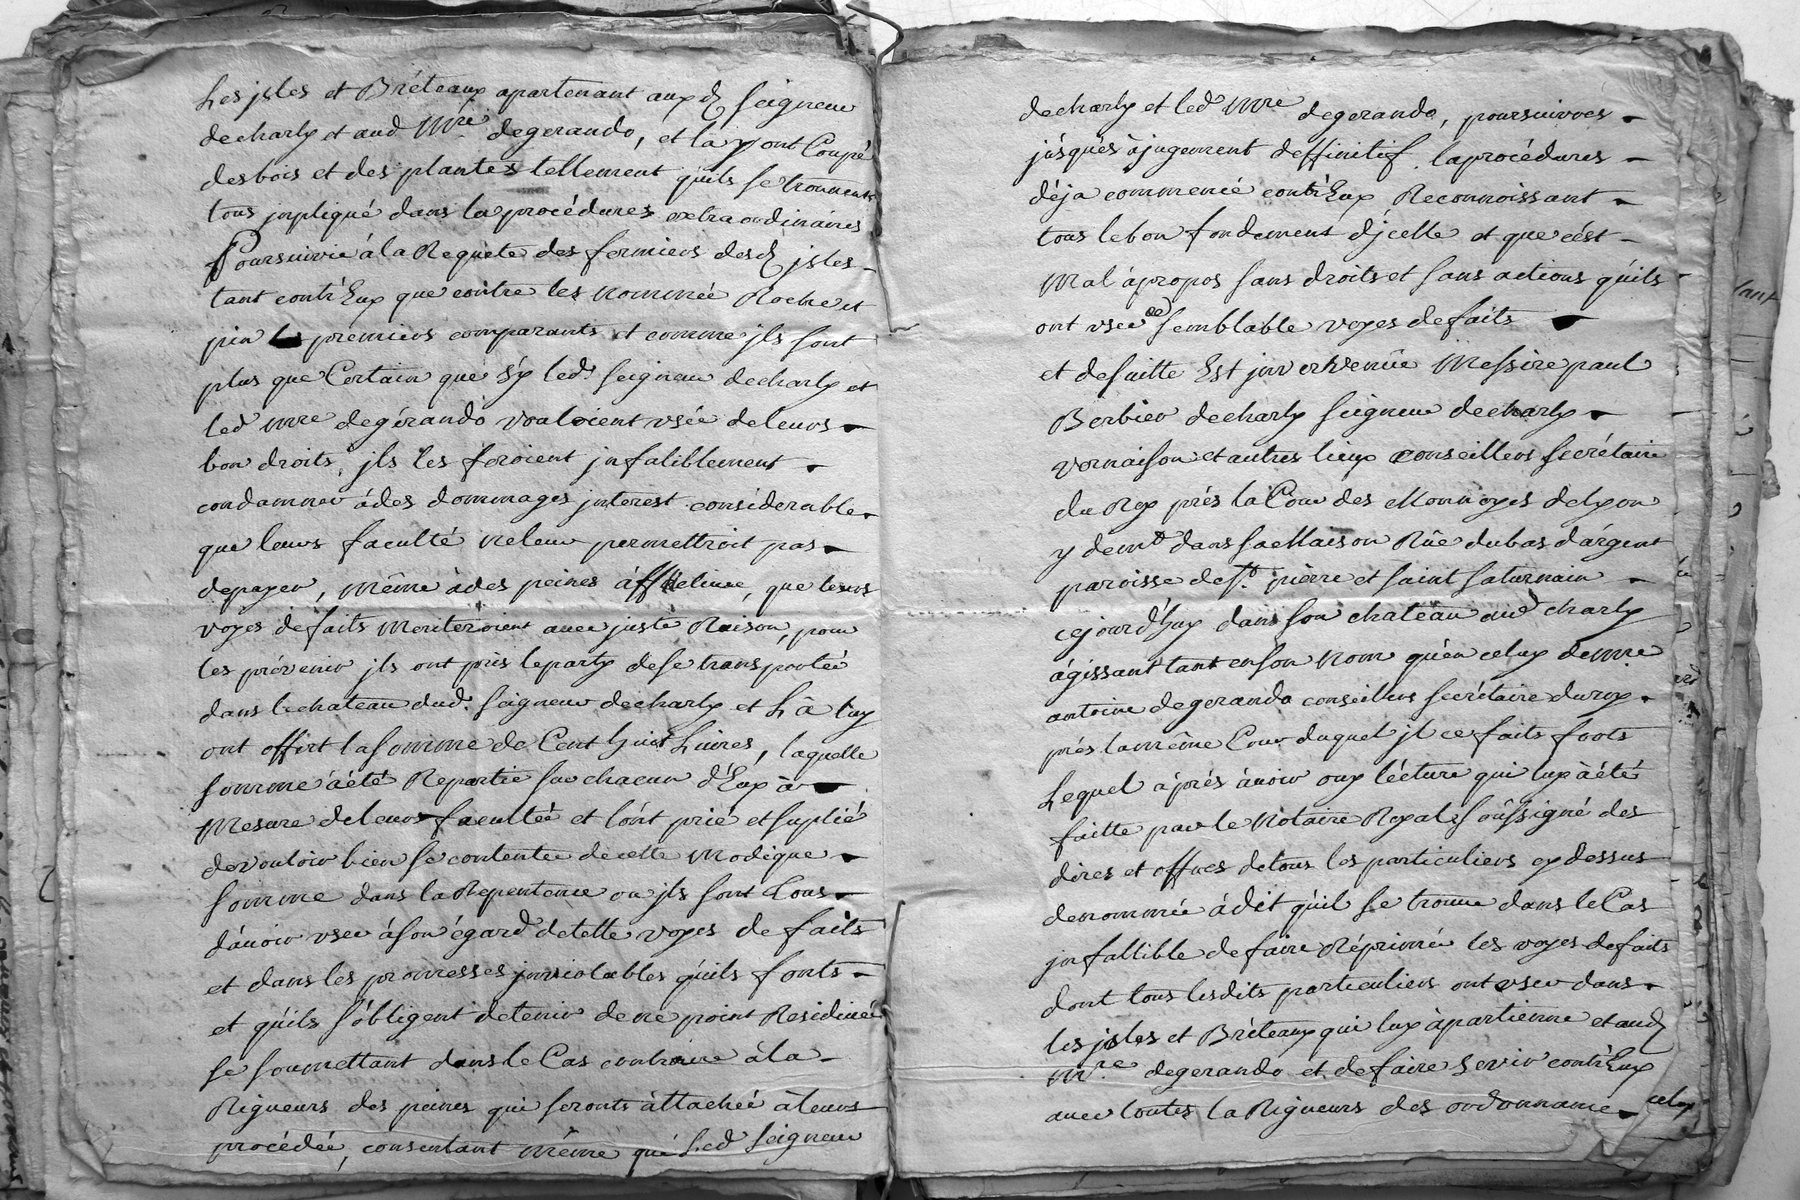 Les jsles et Bréteaux apartenant aux d seigneur
de charly et aud. Mre degerando, et la y ont Coupé
des bois et des plantes tellement quils se trouvent
tous jnpliqué dans la procédures extraordinaires
Poursuivie á la Requete des fermiers desd jsles
tant contr'Eux que contre les nommée Roche et
pin les premiers comparants et comme jls sont
plus que Certain que sy led. seigneur de charly et
led mre degérando vouloient usée de leurs
bon droits, jls les feroient jnfaliblement
condamner à des dommages jnterest considerable
que leurs faculté ne leur permettroit pas
de payer, même à des peines afflictive, que leurs
voyes defaits meriteroient avec juste Raison, pour
les prévenir jls ont pris le party de se transportée
dans le chateau dud. seigneur de charly et Là luy
ont offert la somme de Cent huit Livres, laquelle
somme à été Repartie sur chacun d'Eux à
Mesure de leurs facultée et l'ont prié et suplié
de vouloir bien se contenter de cette modique
somme dans la Repentence ou jls sont tous
d'avoir usée à son égard de telle voyes de faits
et dans les promesses jnviolables qu'ils fonts
et qu'ils s'obligent de tenir de ne point Residivée
se soumettant dans le Cas contraire à la
Rigueurs des peines qui seronts attachée à leurs
procédée, consentant même que Led seigneur
de charly et led Mre degerando, poursuivves
jusques à jugement deffinitif la procédures
déja commencé contr'Eux Reconnoissant
tous le bon fondement d'jcelle et que c'est
Mal à propos sans droits et sans actions qu'ils
ont usée de semblable voyes de faits
et de suitte Est jntervenüe Messire paul
Berbier de charly seigneur de charly
vernaison et autres lieux conseillers secrétaire
du Roy prés la Cour des Monnoyes de lyon
y demt dans sa Maison Rüe du bas d'argent
paroisse de st. pierre et saint saturnain
cejourd'huy dans son chateau aud charly
ágissant tant en son Nom qu'en celuy de mre
antoine degerando conseillers secrétaire du roy
prés la même Cour duquel jl ce faits forts
Lequel àprés àvoir ouy lécture qui luy à été
faitte par le Notaire Royal soussigné des
dires et offres de tous les particuliers cy dessus
denommée à dit qu'il se trouve dans le Cas
jnfallible de faire Réprimée les voyes de faits
dont tous lesdits particuliers ont user dans
les jsles et Bréteaux qui luy àpartienne et aud
Mre degerando et de faire servir contr'Eux
avec toutes la Rigueurs des ordonnance
celuy